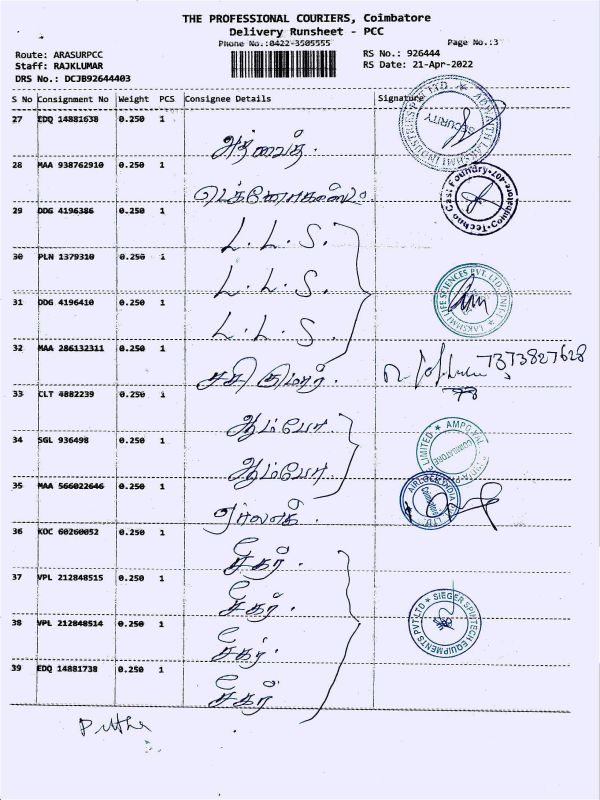 THE PROFESSIONAL COURIERS, Coimbatore
Delivery Runsheet - PCC
Phone No.:0422-3505555
Page No.:3
Route: ARASURPCC
RS No.: 926444
Staff: RAJKLUMAR
RS Date: 21-Apr-2022
DRS No.: DCJB92644403
S No Consignment No Weight PCS Consignee Details Signature
27 EDQ 14881638 0.250 1
அத்வைத்.
28 MAA 938762910 0.250 1
29 DDG 4196386 0.250 1
L. L. S.
30 PLN 1379310 0.250 1
L. L. S.
31 DDG 4196410 0.250 1
L. L. S.
32 MAA 286132311 0.250 1
சசி குமார். 7373827628
33 CLT 4882239 0.250 1
ஆம்போ.
34 SGL 936498 0.250 1
ஆம்போ.
35 MAA 566022646 0.250 1
ஏர்லாக்.
36 KOC 60260052 0.250 1
சீகர்.
37 VPL 212848515 0.250 1
சீகர்.
38 VPL 212848514 0.250 1
சீகர்.
39 EDQ 14881738 0.250 1
சீகர்
SECURITY
LAKSHMI LIFE SCIENCES PVT. LTD. UNIT-I
COIMBATORE
SIEGER SPINTECH EQUIPMENTS PVT LTD